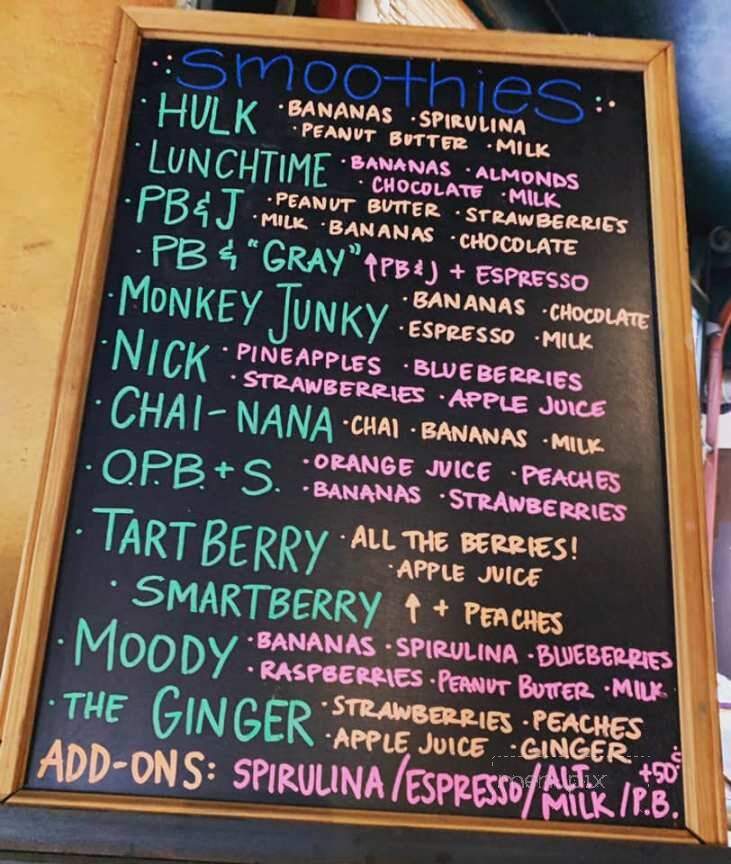 smoothies
· HULK · BANANAS · SPIRULINA
· PEANUT BUTTER · MILK
· LUNCHTIME · BANANAS · ALMONDS
· CHOCOLATE · MILK
· PB&J · PEANUT BUTTER · STRAWBERRIES
· MILK · BANANAS · CHOCOLATE
· PB & "GRAY" ↑PB&J + ESPRESSO
· MONKEY JUNKY · BANANAS · CHOCOLATE
· ESPRESSO · MILK
· NICK · PINEAPPLES · BLUEBERRIES
· STRAWBERRIES · APPLE JUICE
· CHAI-NANA · CHAI · BANANAS · MILK
· O.P.B. + S. · ORANGE JUICE · PEACHES
· BANANAS · STRAWBERRIES
· TARTBERRY · ALL THE BERRIES!
· APPLE JUICE
· SMARTBERRY ↑ + PEACHES
· MOODY · BANANAS · SPIRULINA · BLUEBERRIES
· RASPBERRIES · PEANUT BUTTER · MILK
· THE GINGER · STRAWBERRIES · PEACHES
· APPLE JUICE · GINGER
ADD-ONS: SPIRULINA/ESPRESSO/ALT. MILK/P.B. +50¢
menupix